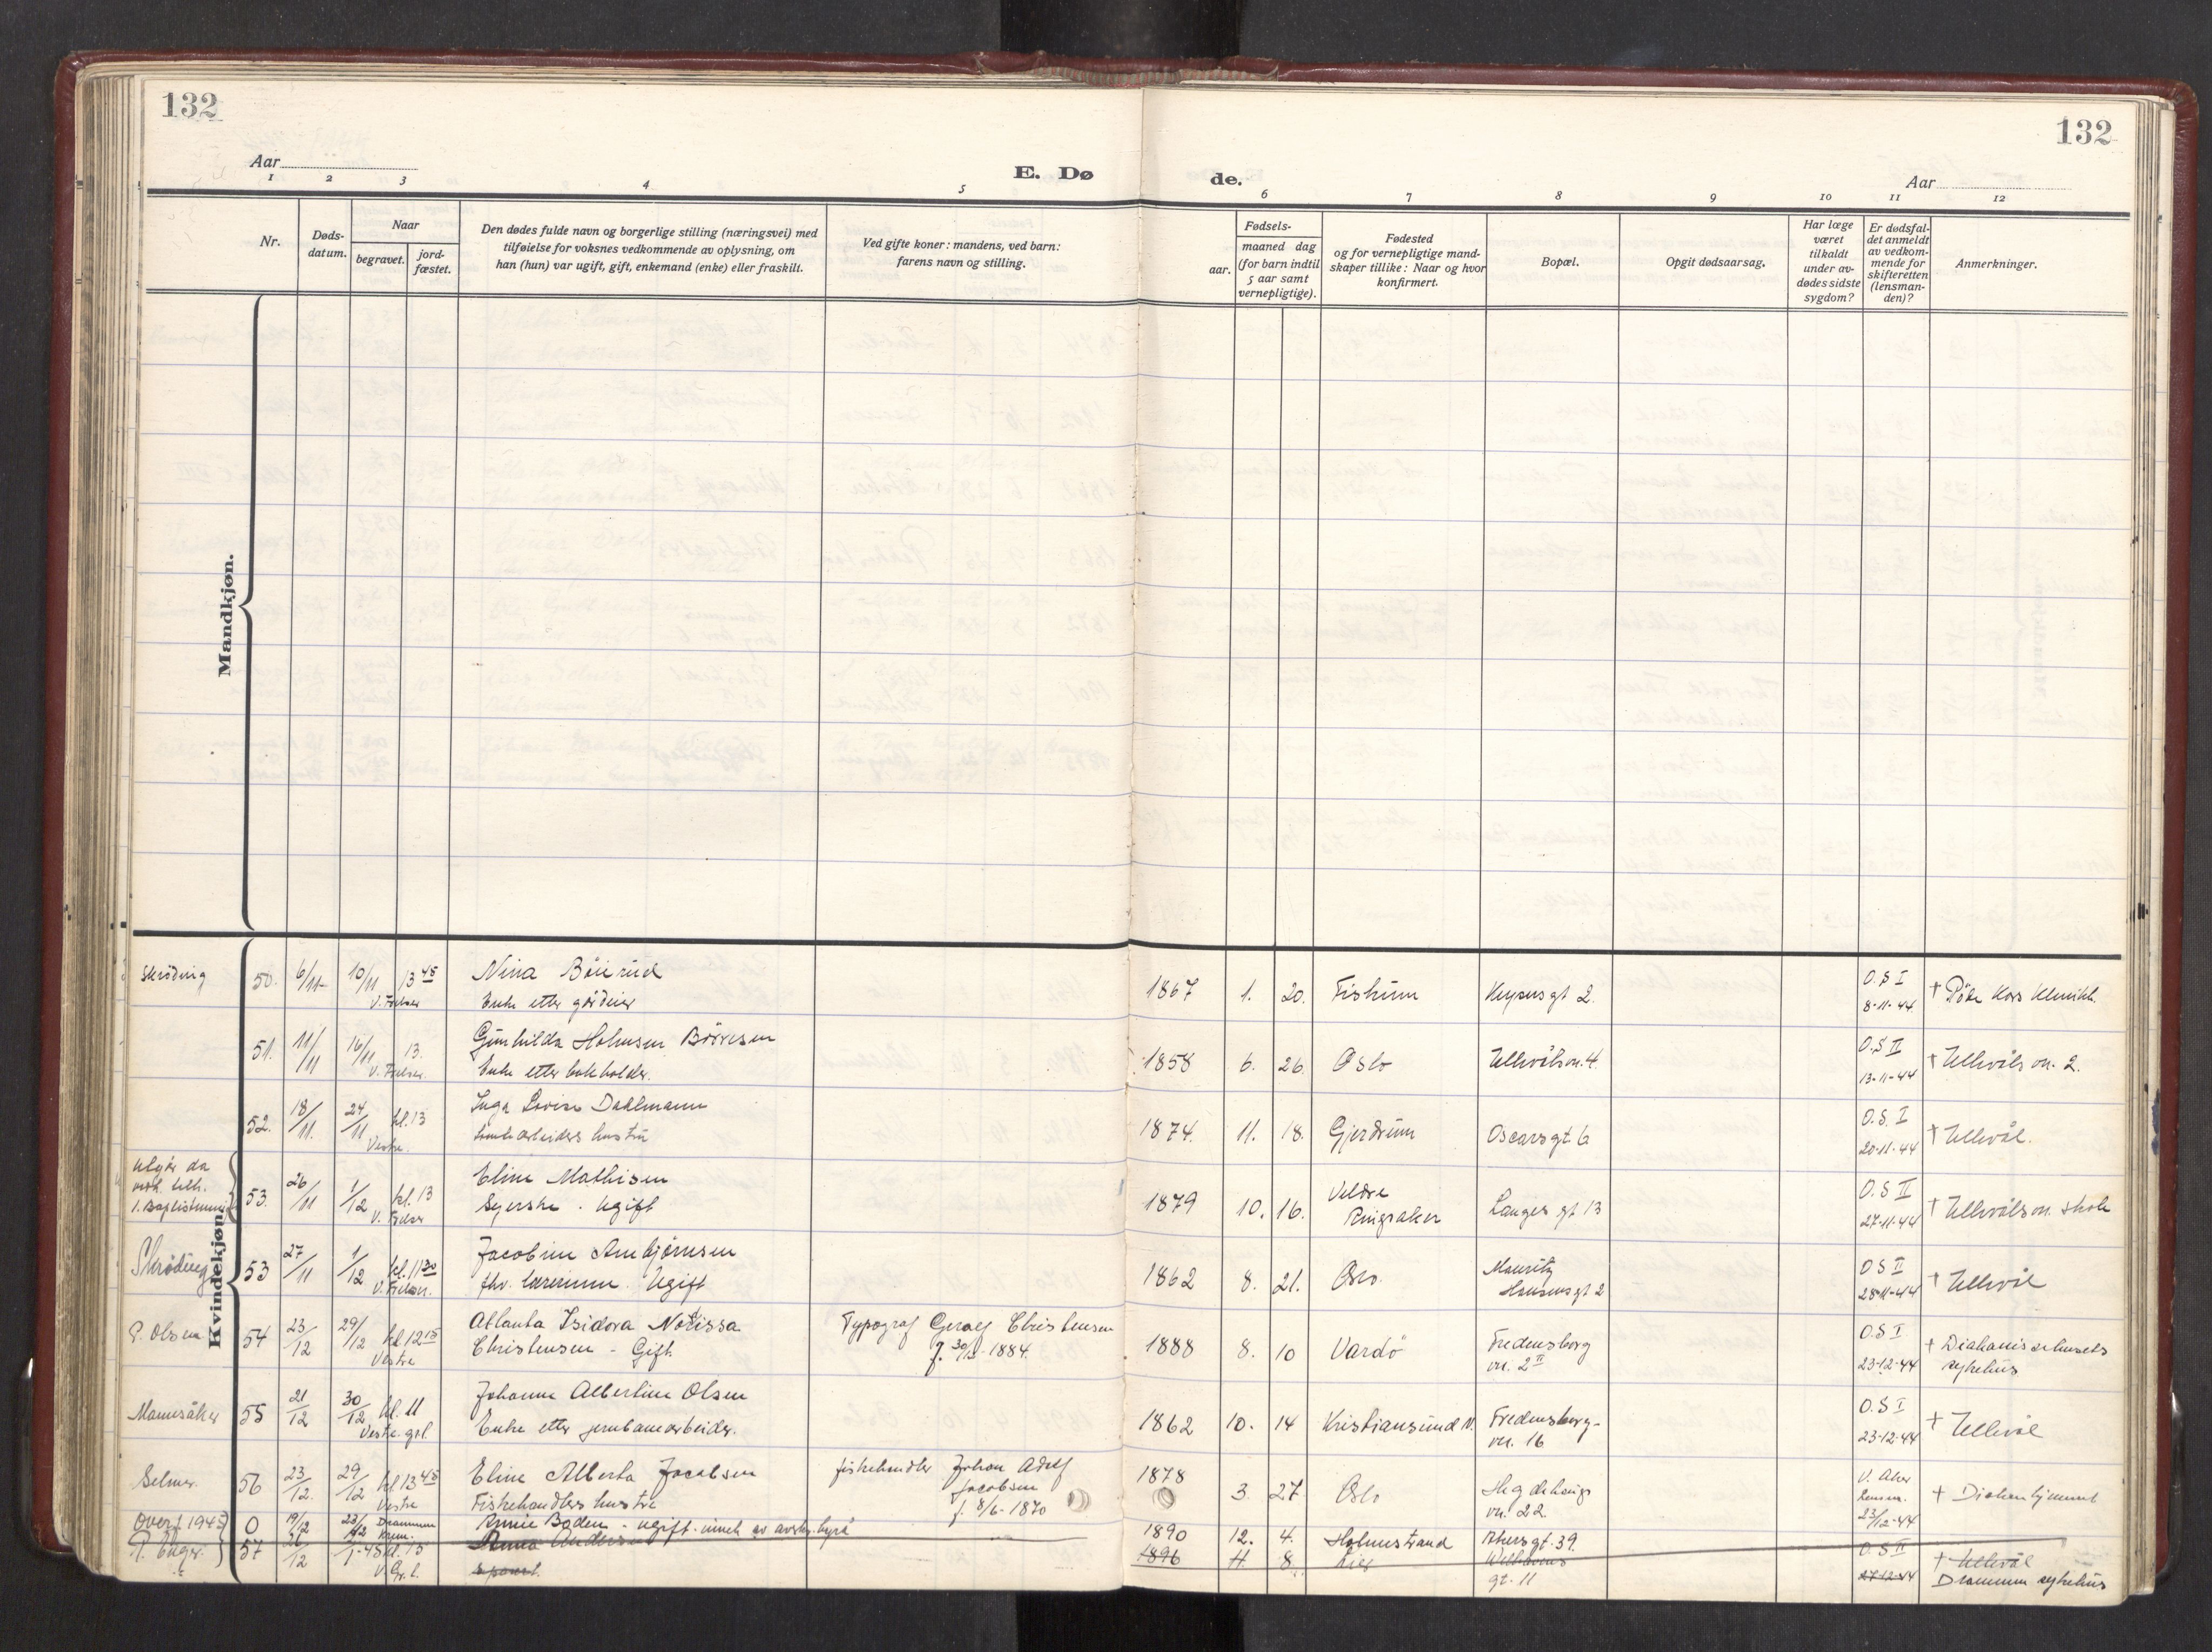 132
132
Aar
Aar
E. Dø
de.
1 2 3 4 5 6 7 8 9 10 11 12
Nr.
Døds-
datum.
Naar
begravet.
jord-
fæstet.
Den dødes fulde navn og borgerlige stilling (næringsvei) med
tilføielse for voksnes vedkommende av oplysning, om
han (hun) var ugift, gift, enkemand (enke) eller fraskilt.
Ved gifte koner: mandens, ved barn:
farens navn og stilling.
aar.
Fødsels-
maaned dag
(for barn indtil
5 aar samt
vernepligtige).
Fødested
og for vernepligtige mand-
skaper tillike: Naar og hvor
konfirmert.
Bopæl.
Opgit dødsaarsag.
Har læge
været
tilkaldt
under av-
dødes sidste
sygdom?
Er dødsfal-
det anmeldt
av vedkom-
mende for
skifteretten
(lensman-
den)?
Anmerkninger.
Mandkjøn.
Kvindekjøn.
Skröding 50. 6/11 10/11 13 45 Nina Böierud 1867 1. 20. Fiskum Keysersgt 2. O.S I † Röde Kors Klinikk.
V. Frelser Enke etter gårdeier 8-11-44
51. 11/11 16/11 13. Gunhilda Holmsen Börresen 1858 6. 26. Oslo Ullevålsvn. 4. O.S II † Ullevålsvn. 2.
V. Frelser. Enke etter bokholder. 13-11-44
52. 18/11. 24/11 kl. 13 Inga Lovise Dahlmann 1874. 11. 18. Gjerdrum Oscarsgt 6 O.S. I † Ullevål.
Vestre. hustru 20-11-44
Utgår da
53. 26/11 1/12 kl. 13 Eline Mathisen 1879 10. 16. Veldre Langes gt 13 O.S II † Ullevålsvn. skole
V. Frelser Syerske . Ugift Ringsaker 27-11-44
Skröding 53 27/11 1/12 kl. 11 30 Jacobine Arnbjörnsen 1862 8. 21. Oslo. Mauritz O S II † Ullevål
V. Frelser. fhv. lærerinne. Ugift Hansens gt 2 28-11-44
P. Olsen 54 23/12 29/12 kl 12 15 Atlanta Isidora Notissa Typograf Christensen 1888 8. 10 Vardö Fredensborg O.S I † Diakonissehusets
Vestre Christensen - Gift f. 1884. vn. 2 II 23-12-44 sykehus
Mannsåker 55 21/12 30/12 kl. 11 Johanne Albertine Olsen 1862 10. 14 Kristiansund N. Fredensborg- O.S I † Ullevål
Vestre grl. Enke etter jernbanearbeider. vn. 16 23-12-44
Selmer. 56 23/12. 29/12 kl 13 45 Eline Alberta Jacobsen fiskehandler Johan Adolf 1878 3. 27. Oslo Hegdehaugs V. Aker † Diakonhjemmet
Vestre Fiskehandlers hustru Jacobsen vn. 22. 23/12-44
f. 8/6-1870
Overf 1945 0 19/12 23/12 Drammen Annie Boden - ugift 1890 12. 4. Holmestrand gt. 39.
P. Enger. 57 26/12 Anna Andersen 1896 11 8. Welhavens O.S II † Ullevål
V. Gr. l. separert. gt. 11 27-12-44 Drammen sykehus